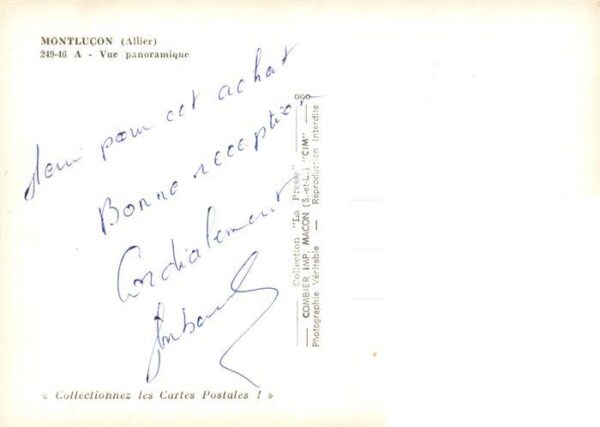 MONTLUÇON (Allier)
249-46 A - Vue panoramique
pour cet achat
Bonne reception
Cordialement
Collection "La Presse"
COMBIER IMP. MACON (S.-et-L.) "CIM"
Photographie Véritable - Reproduction Interdite
« Collectionnez les Cartes Postales ! »